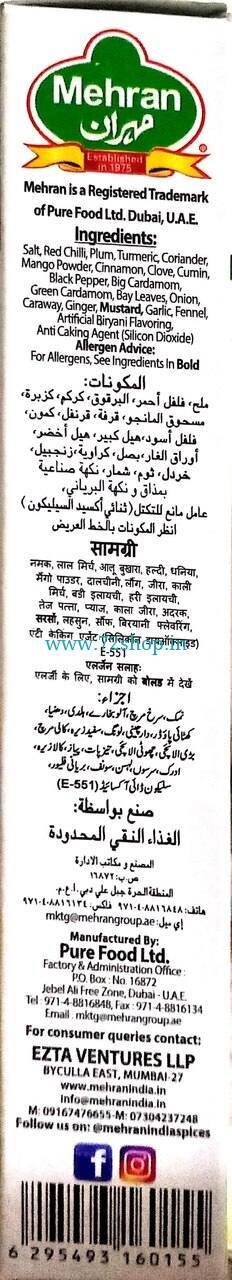 Mehran
مہران
Established
in 1975
Mehran is a Registered Trademark
of Pure Food Ltd. Dubai, U.A.E.
Ingredients:
Salt, Red Chilli, Plum, Turmeric, Coriander,
Mango Powder, Cinnamon, Clove, Cumin,
Black Pepper, Big Cardamom,
Green Cardamom, Bay Leaves, Onion,
Caraway, Ginger, Mustard, Garlic, Fennel,
Artificial Biryani Flavoring,
Anti Caking Agent (Silicon Dioxide)
Allergen Advice:
For Allergens, See Ingredients In Bold
المكونات:
ملح، فلفل أحمر، البرقوق، كركم، كزبرة،
مسحوق المانجو، قرفة، قرنفل، كمون،
فلفل أسود، هيل كبير، هيل أخضر،
أوراق الغار، بصل، كراوية، زنجبيل،
خردل، ثوم، شمار، نكهة صناعية
بمذاق و نكهة البرياني,
عامل مانع للتكتل (ثنائي أكسيد السيليكون)
انظر المكونات بالخط العريض
सामग्री
नमक, लाल मिर्च, आलू बुखारा, हल्दी, धनिया,
मैंगो पाउडर, दालचीनी, लौंग, जीरा, काली
मिर्च, बडी इलायची, हरी इलायची,
तेज पत्ता, प्याज, काला जीरा, अदरक,
सरसों, लहसुन, सौंफ, बिरयानी फ्लेवरिंग,
एंटी केकिंग एजेंट (सिलिकॉन डाइऑक्साइड)
www.72shop.in
E-551
एलर्जन सलाहः
एलर्जी के लिए, सामग्री को बोल्ड में देखें
اجزاء:
نمک، سرخ مرچ، آلو بخارے، ہلدی، دھنیا،
کھٹائی پاؤڈر، دارچینی، لونگ، سفید زیرہ، کالی مرچ،
بڑی الائچی، چھوٹی الائچی، تیزپات، پیاز، کالا زیرہ،
ادرک، سرسوں، لہسن، سونف، بریانی فلیور،
سلیکون ڈائی آکسائیڈ (E-551)
صنع بواسطة:
الغذاء النقي المحدودة
المصنع و مكاتب الادارة
ص.ب: ١٦٨٧٢
المنطقة الحرة جبل علي دبي، ا.ع.م.
هاتف: ٨٨١٦٨٤٨-٤-٩٧١ فاكس: ٨٨١٦١٣٤-٤-٩٧١
إي ميل: mktg@mehrangroup.ae
Manufactured By:
Pure Food Ltd.
Factory & Administration Office :
P.O. Box : No. 16872
Jebel Ali Free Zone, Dubai - U.A.E.
Tel : 971-4-8816848, Fax : 971-4-8816134
Email : mktg@mehrangroup.ae
For consumer queries contact:
EZTA VENTURES LLP
BYCULLA EAST, MUMBAI-27
www.mehranindia.in
Info@mehranindia.in
M: 09167476655-M: 07304237248
Follow us on: @mehranindiaspices
6 295493 160155